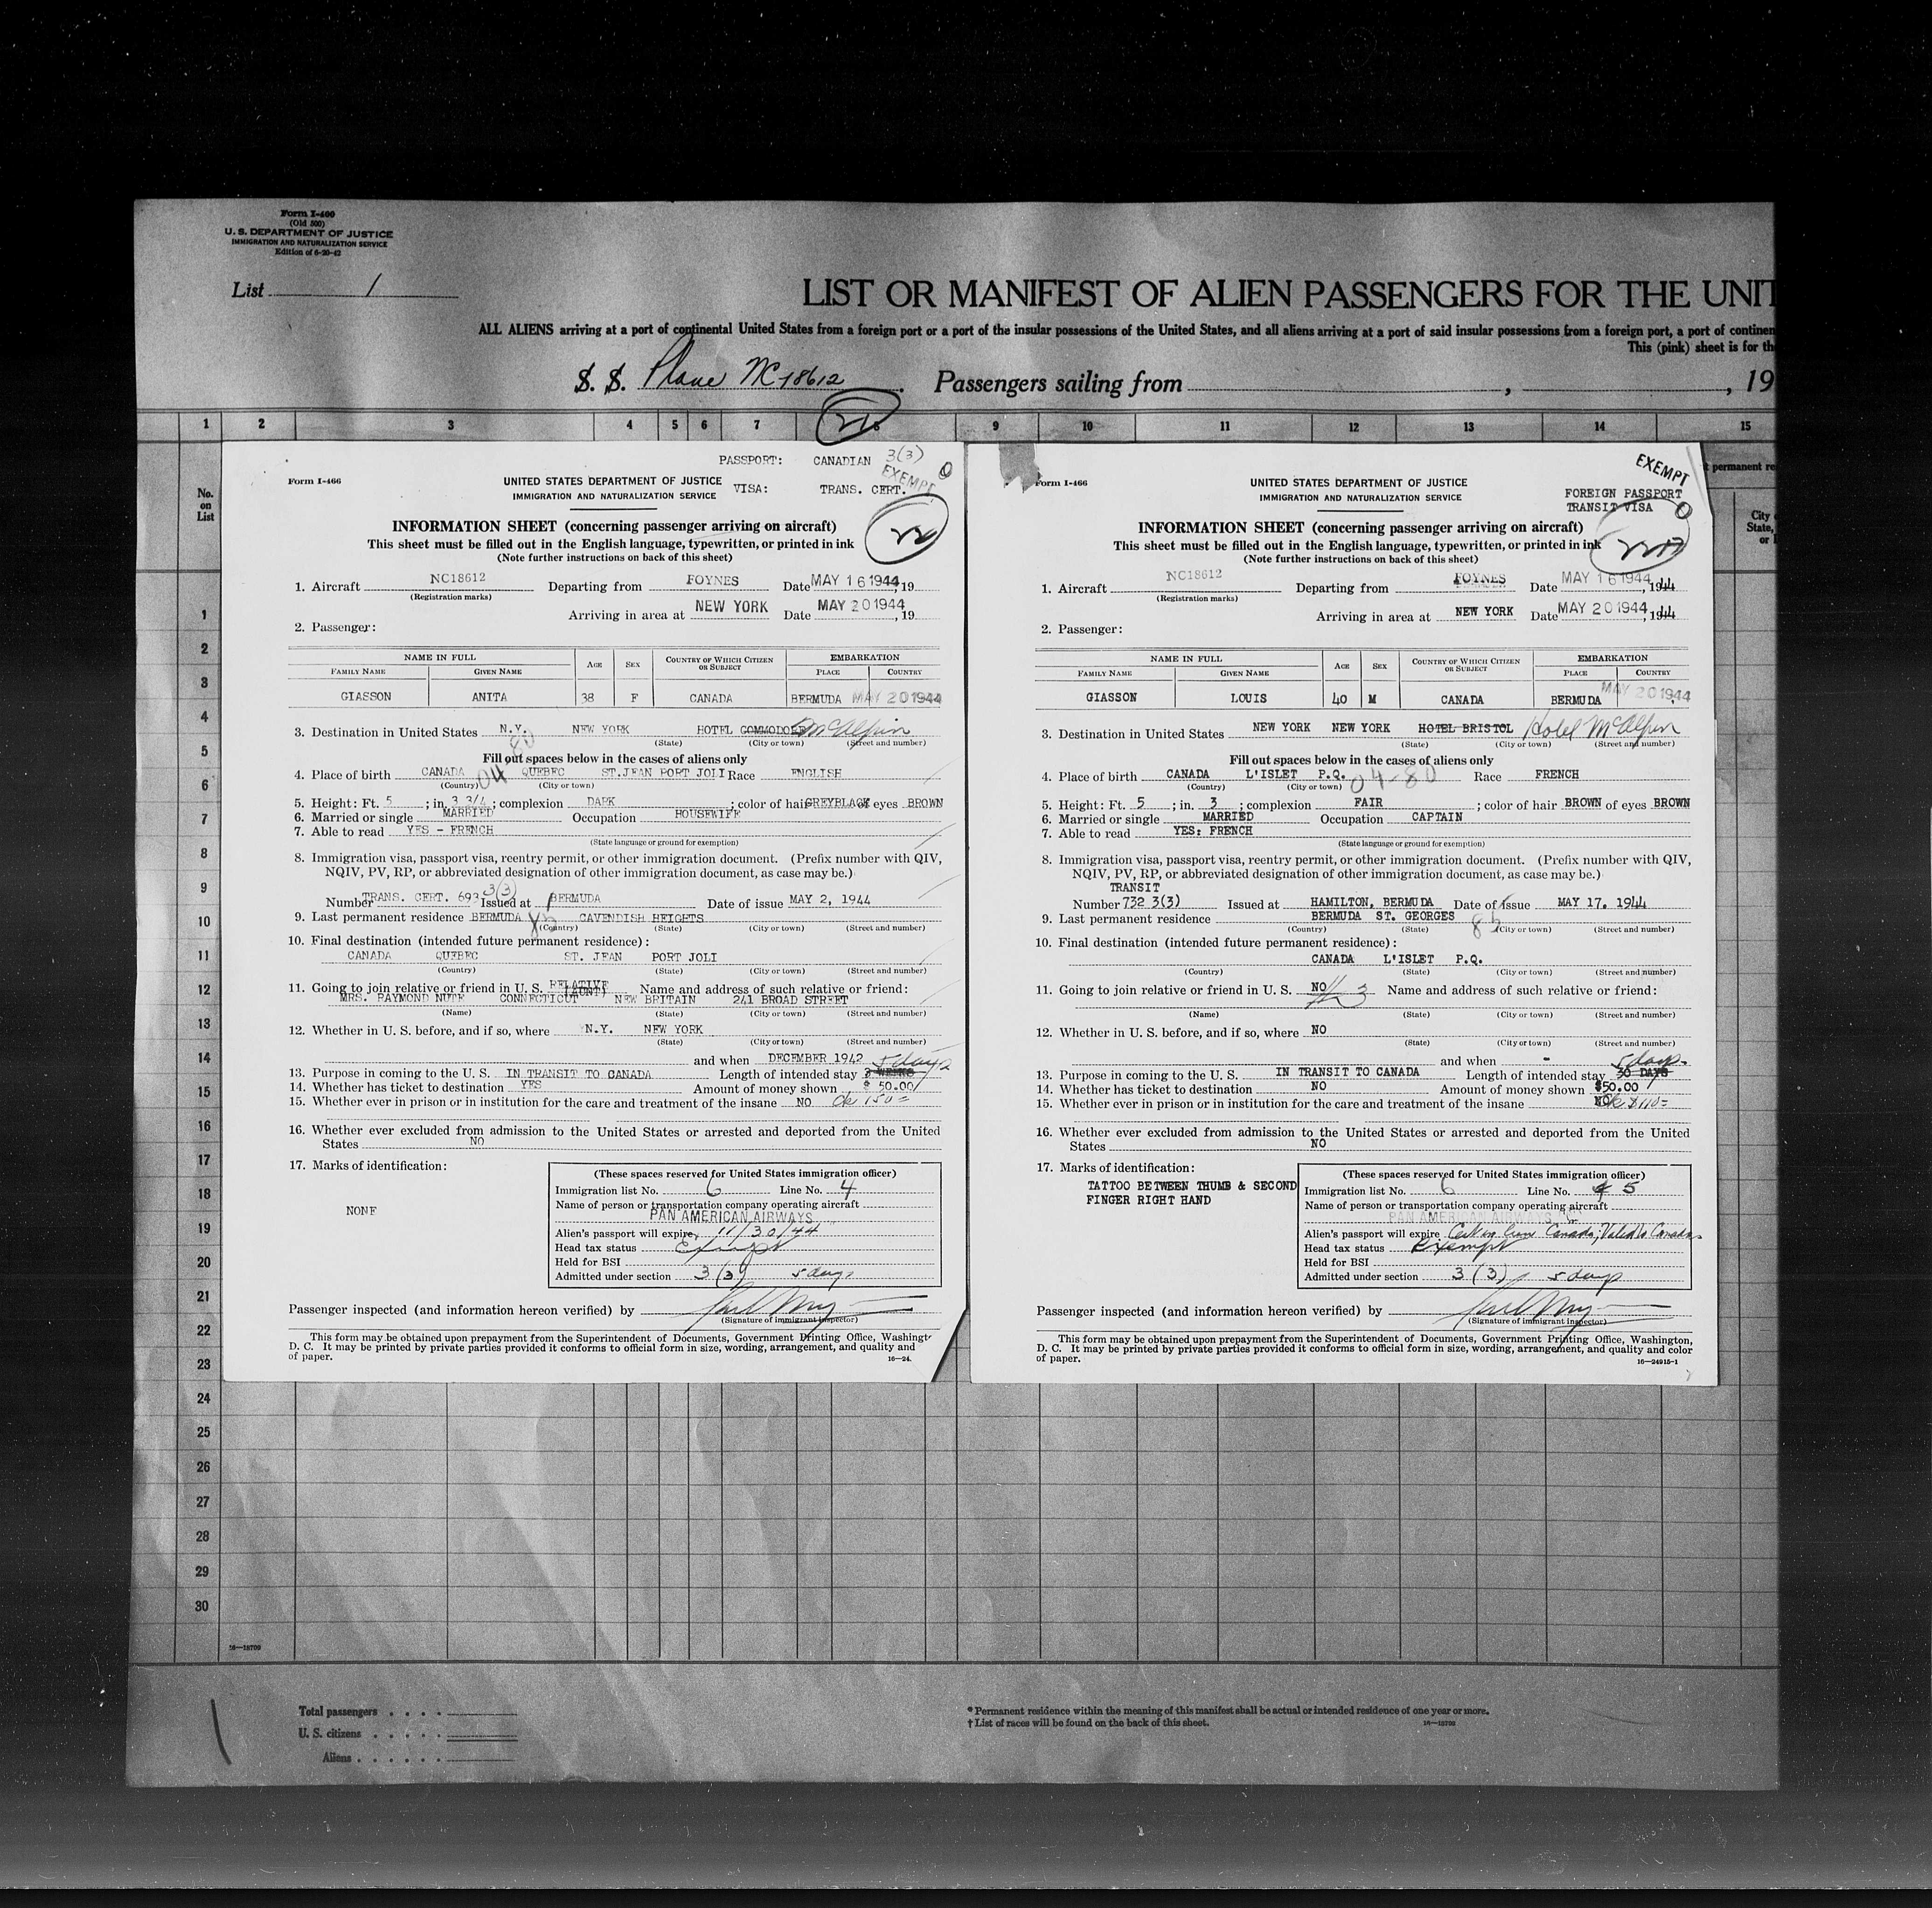 Form I-400
(Old 500)
U. S. DEPARTMENT OF JUSTICE
IMMIGRATION AND NATURALIZATION SERVICE
Edition of 6-20-42
List 1
LIST OR MANIFEST OF ALIEN PASSENGERS FOR THE UNIT
ALL ALIENS arriving at a port of continental United States from a foreign port or a port of the insular possessions of the United States, and all aliens arriving at a port of said insular possessions from a foreign port, a port of continen
This (pink) sheet is for th
S. S. Plane NC 18612 . Passengers sailing from , , 19
1 2 3 4 5 6 7 8 9 10 11 12 13 14 15
No. on List
PASSPORT: CANADIAN 3(3)
EXEMPT
Form I-466
UNITED STATES DEPARTMENT OF JUSTICE
VISA: TRANS. CERT.
IMMIGRATION AND NATURALIZATION SERVICE
INFORMATION SHEET (concerning passenger arriving on aircraft)
This sheet must be filled out in the English language, typewritten, or printed in ink
(Note further instructions on back of this sheet)
1. Aircraft NC18612 Departing from FOYNES Date MAY 16 1944, 19
(Registration marks)
Arriving in area at NEW YORK Date MAY 20 1944, 19
2. Passenger:
NAME IN FULL AGE SEX COUNTRY OF WHICH CITIZEN OR SUBJECT EMBARKATION
FAMILY NAME GIVEN NAME PLACE COUNTRY
GIASSON ANITA 38 F CANADA BERMUDA MAY 20 1944
3. Destination in United States N.Y. NEW YORK HOTEL COMMODORE McAlpin
(State) (City or town) (Street and number)
Fill out spaces below in the cases of aliens only
4. Place of birth CANADA QUEBEC ST.JEAN PORT JOLI Race ENGLISH
(Country) (City or town)
5. Height: Ft. 5 ; in. 3 3/4 ; complexion DARK ; color of hair GREYBLACK of eyes BROWN
6. Married or single MARRIED Occupation HOUSEWIFE
7. Able to read YES - FRENCH
(State language or ground for exemption)
8. Immigration visa, passport visa, reentry permit, or other immigration document. (Prefix number with QIV,
NQIV, PV, RP, or abbreviated designation of other immigration document, as case may be.)
Number TRANS. CERT. 693 3(3) Issued at BERMUDA Date of issue MAY 2, 1944
9. Last permanent residence BERMUDA CAVENDISH HEIGHTS
(Country) (State) (City or town) (Street and number)
10. Final destination (intended future permanent residence):
CANADA QUEBEC ST. JEAN PORT JOLI
(Country) (State) (City or town) (Street and number)
11. Going to join relative or friend in U. S. RELATIVE (AUNT) Name and address of such relative or friend:
MRS. RAYMOND NUTE CONNECTICUT NEW BRITAIN 241 BROAD STREET
(Name) (State) (City or town) (Street and number)
12. Whether in U. S. before, and if so, where N.Y. NEW YORK
(State) (City or town) (Street and number)
and when DECEMBER 1942 5 days
13. Purpose in coming to the U. S. IN TRANSIT TO CANADA Length of intended stay 3 WEEKS
14. Whether has ticket to destination YES Amount of money shown $ 50.00
15. Whether ever in prison or in institution for the care and treatment of the insane NO
16. Whether ever excluded from admission to the United States or arrested and deported from the United
States NO
17. Marks of identification:
NONE
(These spaces reserved for United States immigration officer)
Immigration list No. 6 Line No. 4
Name of person or transportation company operating aircraft
PAN AMERICAN AIRWAYS
Alien's passport will expire 11/30/44
Head tax status Exempt
Held for BSI
Admitted under section 3 (3) 5 days
Passenger inspected (and information hereon verified) by
(Signature of immigrant inspector)
This form may be obtained upon prepayment from the Superintendent of Documents, Government Printing Office, Washingt
D. C. It may be printed by private parties provided it conforms to official form in size, wording, arrangement, and quality and
of paper. 16—24
EXEMPT
Form I-466
UNITED STATES DEPARTMENT OF JUSTICE
IMMIGRATION AND NATURALIZATION SERVICE
FOREIGN PASSPORT
TRANSIT VISA
INFORMATION SHEET (concerning passenger arriving on aircraft)
This sheet must be filled out in the English language, typewritten, or printed in ink
(Note further instructions on back of this sheet)
1. Aircraft NC18612 Departing from FOYNES Date MAY 16 1944, 1944
(Registration marks)
Arriving in area at NEW YORK Date MAY 20 1944, 1944
2. Passenger:
NAME IN FULL AGE SEX COUNTRY OF WHICH CITIZEN OR SUBJECT EMBARKATION
FAMILY NAME GIVEN NAME PLACE COUNTRY
GIASSON LOUIS 40 M CANADA BERMUDA MAY 20 1944
3. Destination in United States NEW YORK NEW YORK HOTEL BRISTOL Hotel McAlpin
(State) (City or town) (Street and number)
Fill out spaces below in the cases of aliens only
4. Place of birth CANADA L'ISLET P.Q. 04-80 Race FRENCH
(Country) (City or town)
5. Height: Ft. 5 ; in. 3 ; complexion FAIR ; color of hair BROWN of eyes BROWN
6. Married or single MARRIED Occupation CAPTAIN
7. Able to read YES: FRENCH
(State language or ground for exemption)
8. Immigration visa, passport visa, reentry permit, or other immigration document. (Prefix number with QIV,
NQIV, PV, RP, or abbreviated designation of other immigration document, as case may be.)
TRANSIT
Number 732 3(3) Issued at HAMILTON, BERMUDA Date of issue MAY 17. 1944
9. Last permanent residence BERMUDA ST. GEORGES
(Country) (State) (City or town) (Street and number)
10. Final destination (intended future permanent residence):
CANADA L'ISLET P.Q.
(Country) (State) (City or town) (Street and number)
11. Going to join relative or friend in U. S. NO Name and address of such relative or friend:
(Name) (State) (City or town) (Street and number)
12. Whether in U. S. before, and if so, where NO
(State) (City or town) (Street and number)
and when - 5 days
13. Purpose in coming to the U. S. IN TRANSIT TO CANADA Length of intended stay 30 DAYS
14. Whether has ticket to destination NO Amount of money shown $50.00
15. Whether ever in prison or in institution for the care and treatment of the insane NO
16. Whether ever excluded from admission to the United States or arrested and deported from the United
States NO
17. Marks of identification:
TATTOO BETWEEN THUMB & SECOND
FINGER RIGHT HAND
(These spaces reserved for United States immigration officer)
Immigration list No. 6 Line No. 5
Name of person or transportation company operating aircraft
PAN AMERICAN AIRWAYS
Alien's passport will expire Canada; Valid to Canada
Head tax status Exempt
Held for BSI
Admitted under section 3 (3) 5 days
Passenger inspected (and information hereon verified) by
(Signature of immigrant inspector)
This form may be obtained upon prepayment from the Superintendent of Documents, Government Printing Office, Washington,
D. C. It may be printed by private parties provided it conforms to official form in size, wording, arrangement, and quality and color
of paper. 16—24915-1
permanent re
City
State,
or
1
2
3
4
5
6
7
8
9
10
11
12
13
14
15
16
17
18
19
20
21
22
23
24
25
26
27
28
29
30
16—18709
Total passengers . . . .
U. S. citizens . . . . .
Aliens . . . . . .
* Permanent residence within the meaning of this manifest shall be actual or intended residence of one year or more.
† List of races will be found on the back of this sheet. 16—18709